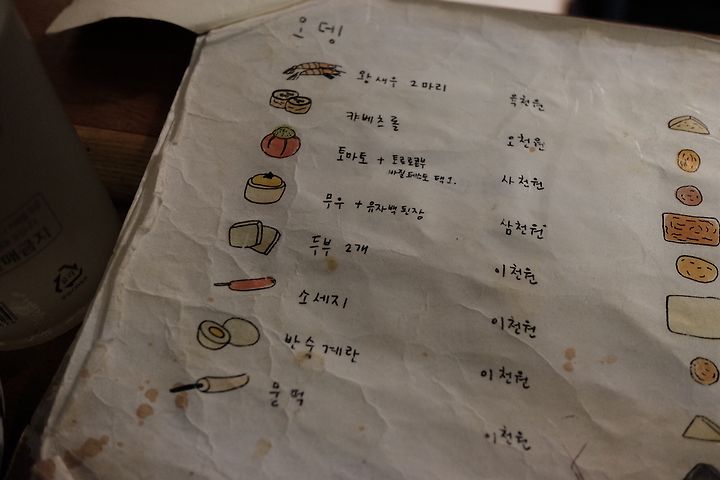 오뎅
왕새우 2마리 육천원
캬베츠롤 오천원
토마토 + 토로로곤부 사천원
바질페스토 택1.
무우 + 유자백된장 삼천원
두부 2개 이천원
소세지 이천원
반숙계란 이천원
물떡 이천원